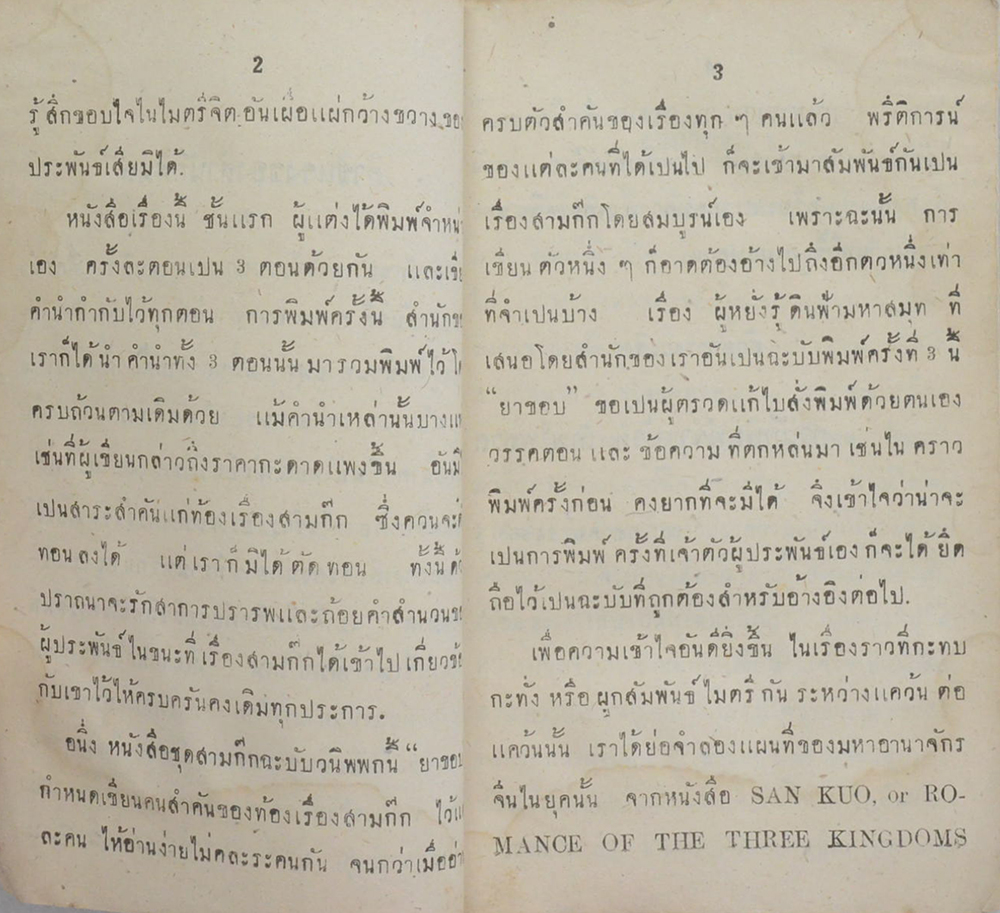 2
รู้สึกขอบใจในไมตรีจิต อันเผื่อแผ่กว้างขวาง
ประพันธ์เสียมิได้.
หนังสือเรื่องนี้ ชั้นแรก ผู้แต่งได้พิมพ์จำหน่
เอง ครั้งละตอนเปน 3 ตอนด้วยกัน และ
คำนำกำกับไว้ทุกตอน การพิมพ์ครั้งนี้ สำนัก
เราก็ได้นำ คำนำทั้ง 3 ตอนนั้น มารวมพิมพ์ไว้
ครบถ้วนตามเดิมด้วย แม้คำนำเหล่านั้นบาง
เช่นที่ผู้เขียนกล่าวถึงราคากะดาดแพงขึ้น อัน
เปนสาระสำคันแก่ท้องเรื่องสามก๊ก ซึ่งควนจะ
ทอนลงได้ แต่เราก็มิได้ตัดทอน ทั้งนี้
ปราถนาจะรักสาการปรารพและถ้อยคำสำนวน
ผู้ประพันธ์ในขนะที่เรื่องสามก๊กได้เข้าไปเกี่ยว
กับเขาไว้ให้ครบครันคงเดิมทุกประการ.
อนึ่ง หนังสือชุดสามก๊กฉะบับวนิพพกนี้ "ยาขอบ
กำหนดเขียนคนสำคันของท้องเรื่องสามก๊ก
ละคน ให้อ่านง่ายไม่คละระคนกัน จนกว่าเมื่อ
3
ครบตัวสำคันของเรื่องทุก ๆ คนแล้ว พรึติการน์
ของแต่ละคนที่ได้เปนไป ก็จะเข้ามาสัมพันธ์กันเปน
เรื่องสามก๊กโดยสมบูรน์เอง เพราะฉะนั้น การ
เขียนตัวหนึ่ง ๆ ก็อาดต้องอ้างไปถึงอีกตวหนึ่งเท่า
ที่จำเปนบ้าง เรื่อง ผู้หยั่งรู้ดินฟ้ามหาสมุท ที่
เสนอโดยสำนักของเราอันเปนฉะบับพิมพ์ครั้งที่ 3 นี้
"ยาขอบ" ขอเปนผู้ตรวดแก้ใบสั่งพิมพ์ด้วยตนเอง
วรรคตอน และ ข้อความ ที่ตกหล่นมา เช่นใน คราว
พิมพ์ครั้งก่อน คงยากที่จะมีได้ จึงเข้าใจว่าน่าจะ
เปนการพิมพ์ ครั้งที่เจ้าตัวผู้ประพันธ์เองก็จะได้ ยึด
ถือไว้เปนฉะบับที่ถูกต้องสำหรับอ้างอิงต่อไป.
เพื่อความเข้าใจอันดียิ่งขึ้น ในเรื่องราวที่กะทบ
กะทั่ง หรือ ผูกสัมพันธ์ไมตรีกัน ระหว่างแคว้น ต่อ
แคว้นนั้น เราได้ย่อจำลองแผนที่ของมหาอานาจักร
จีนในยุคนั้น จากหนังสือ SAN KUO, or RO-
MANCE OF THE THREE KINGDOMS